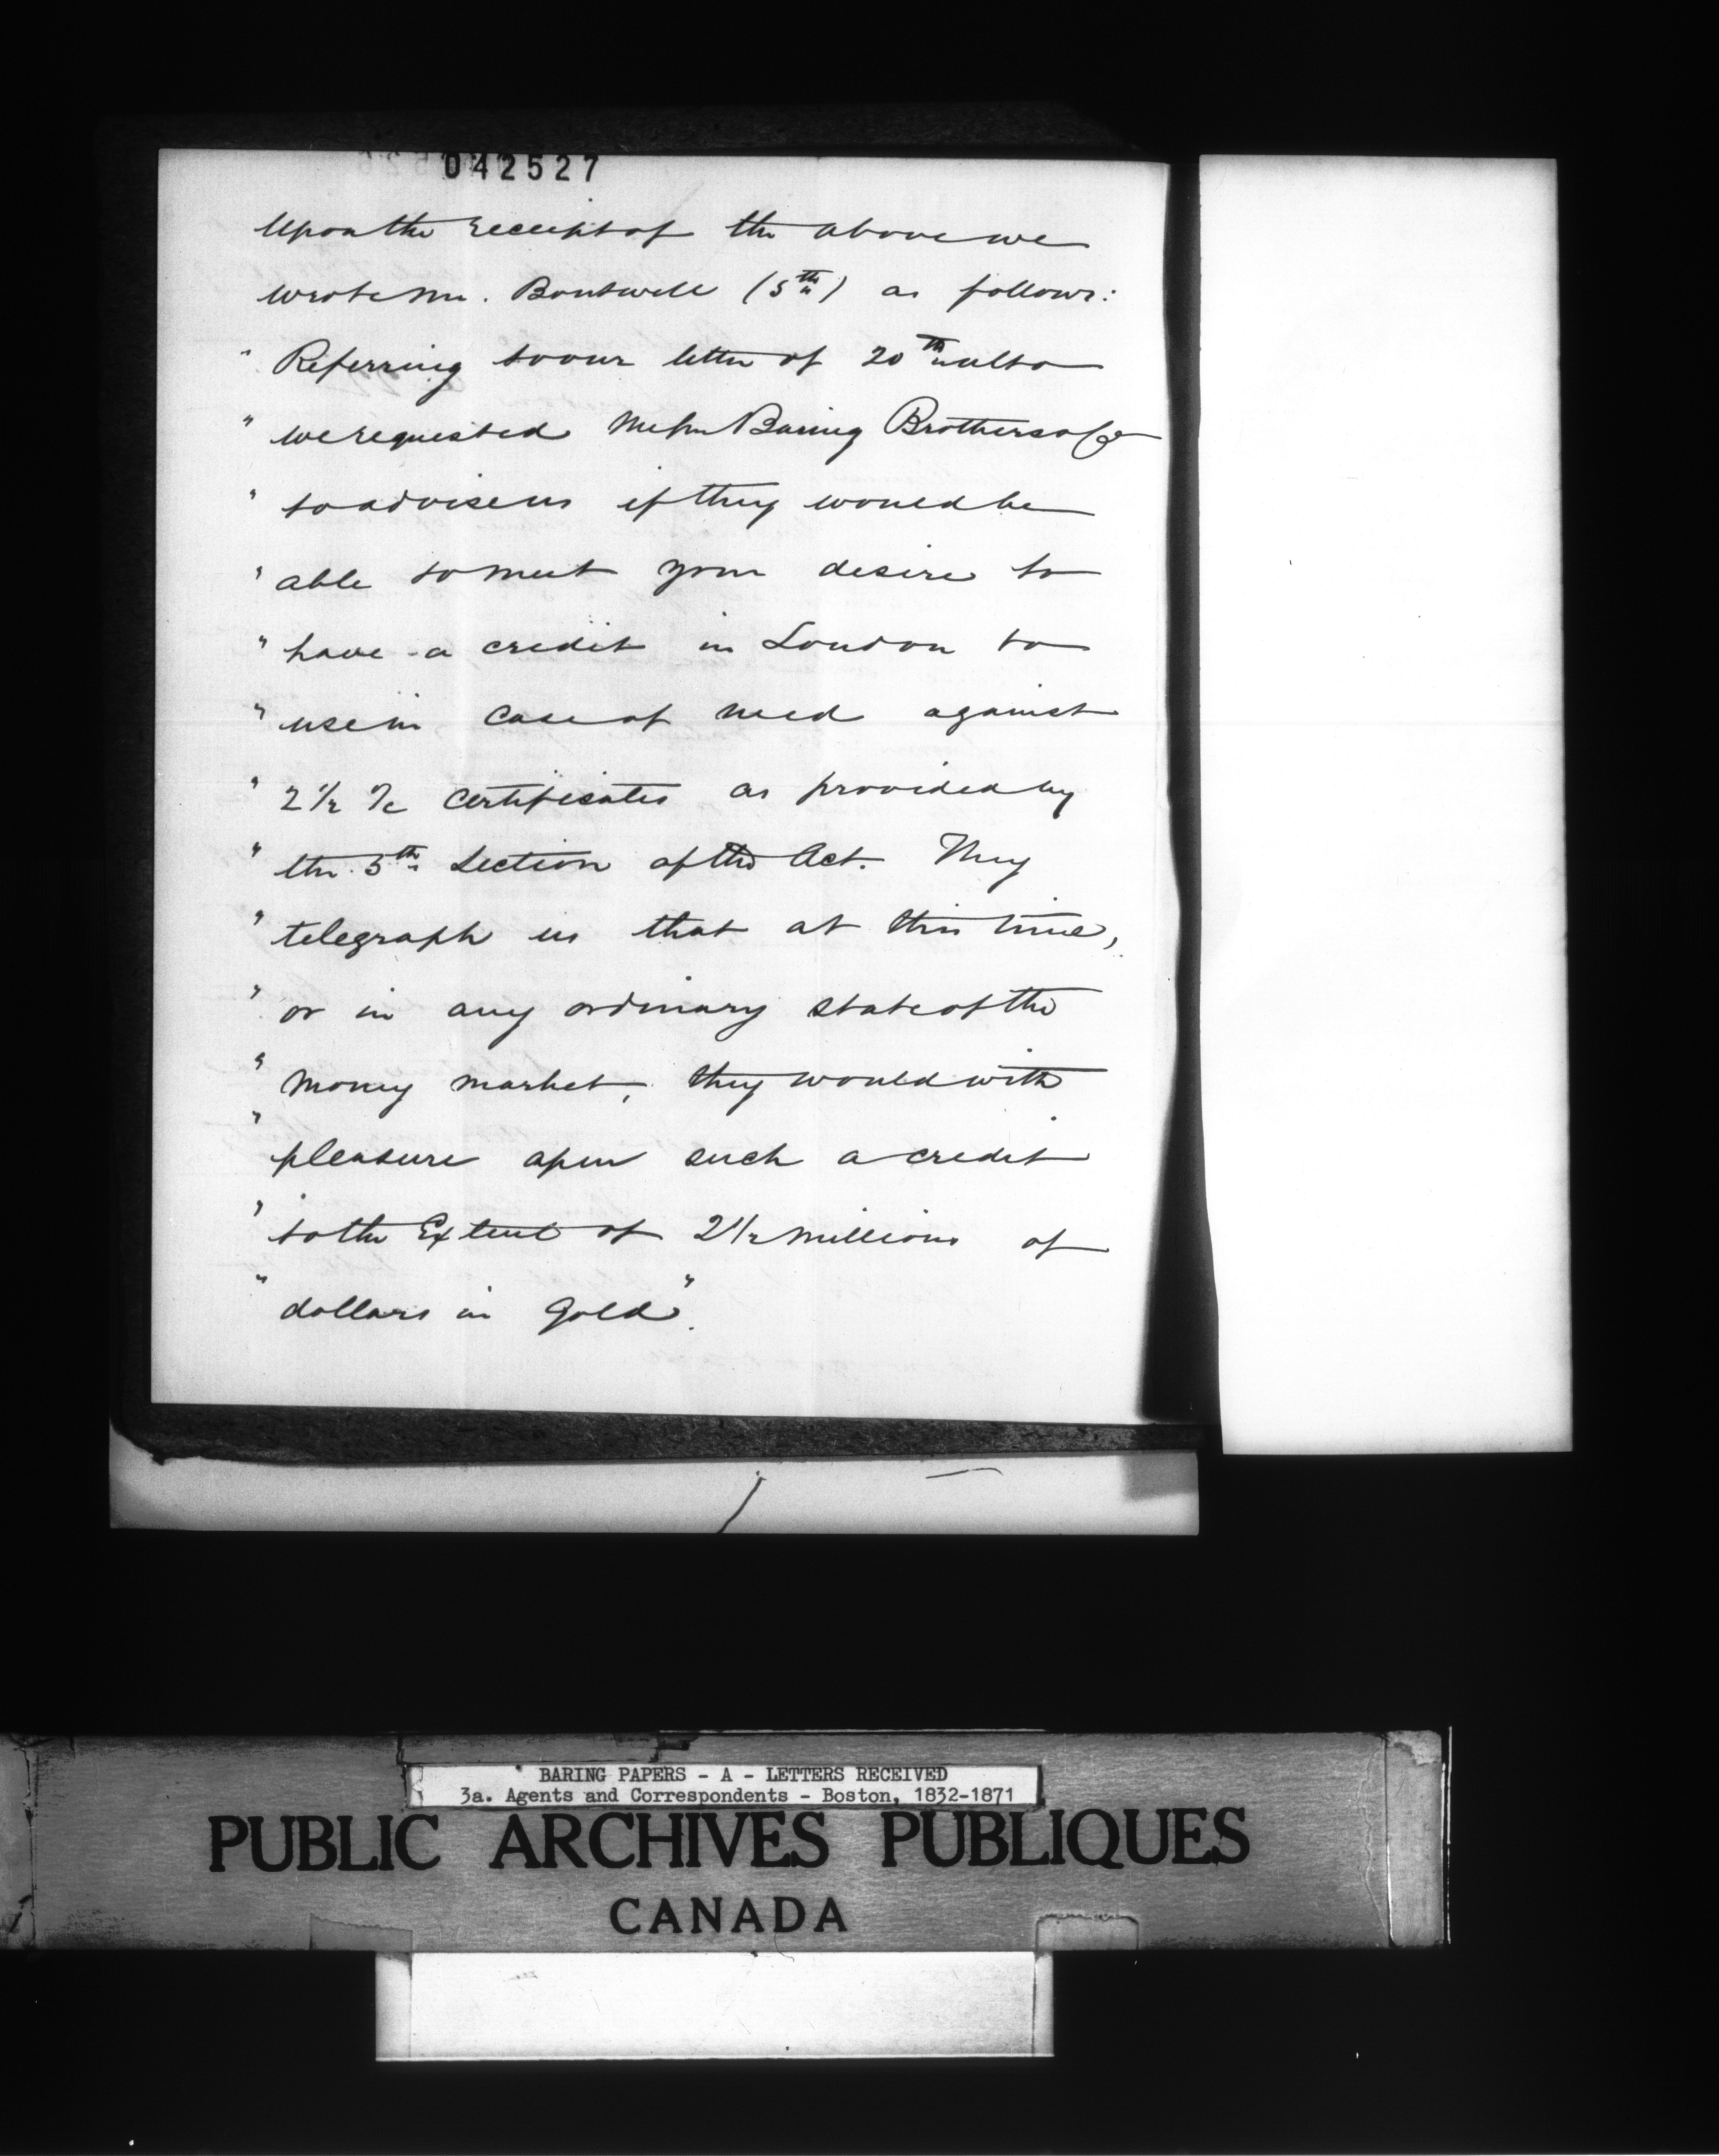 042527
Upon the receipt of the above we
wrote Mr. Boutwell (5th) as follows:
" Referring to our letter of 20th ulto
" we requested Messrs Baring Brothers & Co
" to advise us if they would be
" able to meet your desire to
" have a credit in London to
" use in case of need against
" 2 1/2 % Certificates as provided by
" the 5th Section of the Act. They
" telegraph us that at this time,
" or in any ordinary state of the
" money market, they would with
" pleasure open such a credit
" to the Extent of 2 1/2 millions of
" dollars in Gold".
BARING PAPERS - A - LETTERS RECEIVED
3a. Agents and Correspondents - Boston, 1832-1871
PUBLIC ARCHIVES PUBLIQUES
CANADA